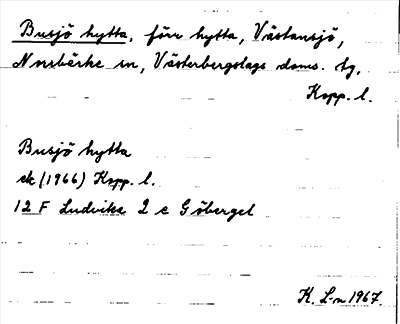 Busjö hytta, förr hytta, Västansjö,
Norrbärke sn, Västerbergslags doms. tg,
Kopp. l.
Busjö hytta
ek (1966) Kopp. l.
12 F Ludvika 2 e Gåberget
K. L-n 1967.